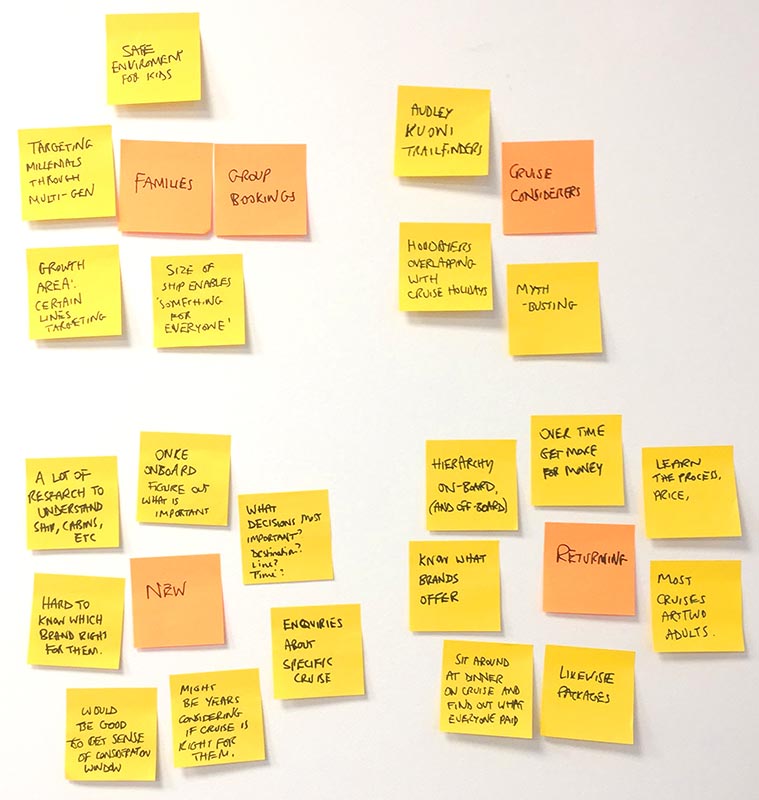 SAFE
ENVIROMENT
FOR KIDS
TARGETING
MILLENIALS
THROUGH
MULTI-GEN
FAMILIES
GROUP
BOOKINGS
GROWTH
AREA:
CERTAIN
LINES
TARGETING
SIZE OF
SHIP ENABLES
'SOMETHING
FOR
EVERYONE'
AUDLEY
KUONI
TRAILFINDERS
CRUISE
CONSIDERERS
OVERLAPPING
WITH
CRUISE HOLIDAYS
MYTH
-BUSTING
A LOT OF
RESEARCH TO
UNDERSTAND
SHIP, CABINS,
ETC
ONCE
ONBOARD
FIGURE OUT
WHAT IS
IMPORTANT
WHAT
DECISIONS MOST
IMPORTANT?
Destination?
Line?
Time?
HARD TO
KNOW WHICH
BRAND RIGHT
FOR THEM.
NEW
ENQUIRIES
ABOUT
SPECIFIC
CRUISE
WOULD
BE GOOD
TO GET SENSE
OF CONSIDERATION
WINDOW
MIGHT
BE YEARS
CONSIDERING
IF CRUISE IS
RIGHT FOR
THEM.
HIERARCHY
ON-BOARD,
(AND OFF-BOARD)
OVER TIME
GET MORE
FOR MONEY
LEARN
THE PROCESS,
PRICE,
KNOW WHAT
BRANDS
OFFER
RETURNING
MOST
CRUISES
ARE TWO
ADULTS.
SIT AROUND
AT DINNER
ON CRUISE AND
FIND OUT WHAT
EVERYONE PAID
LIKEWISE
PACKAGES